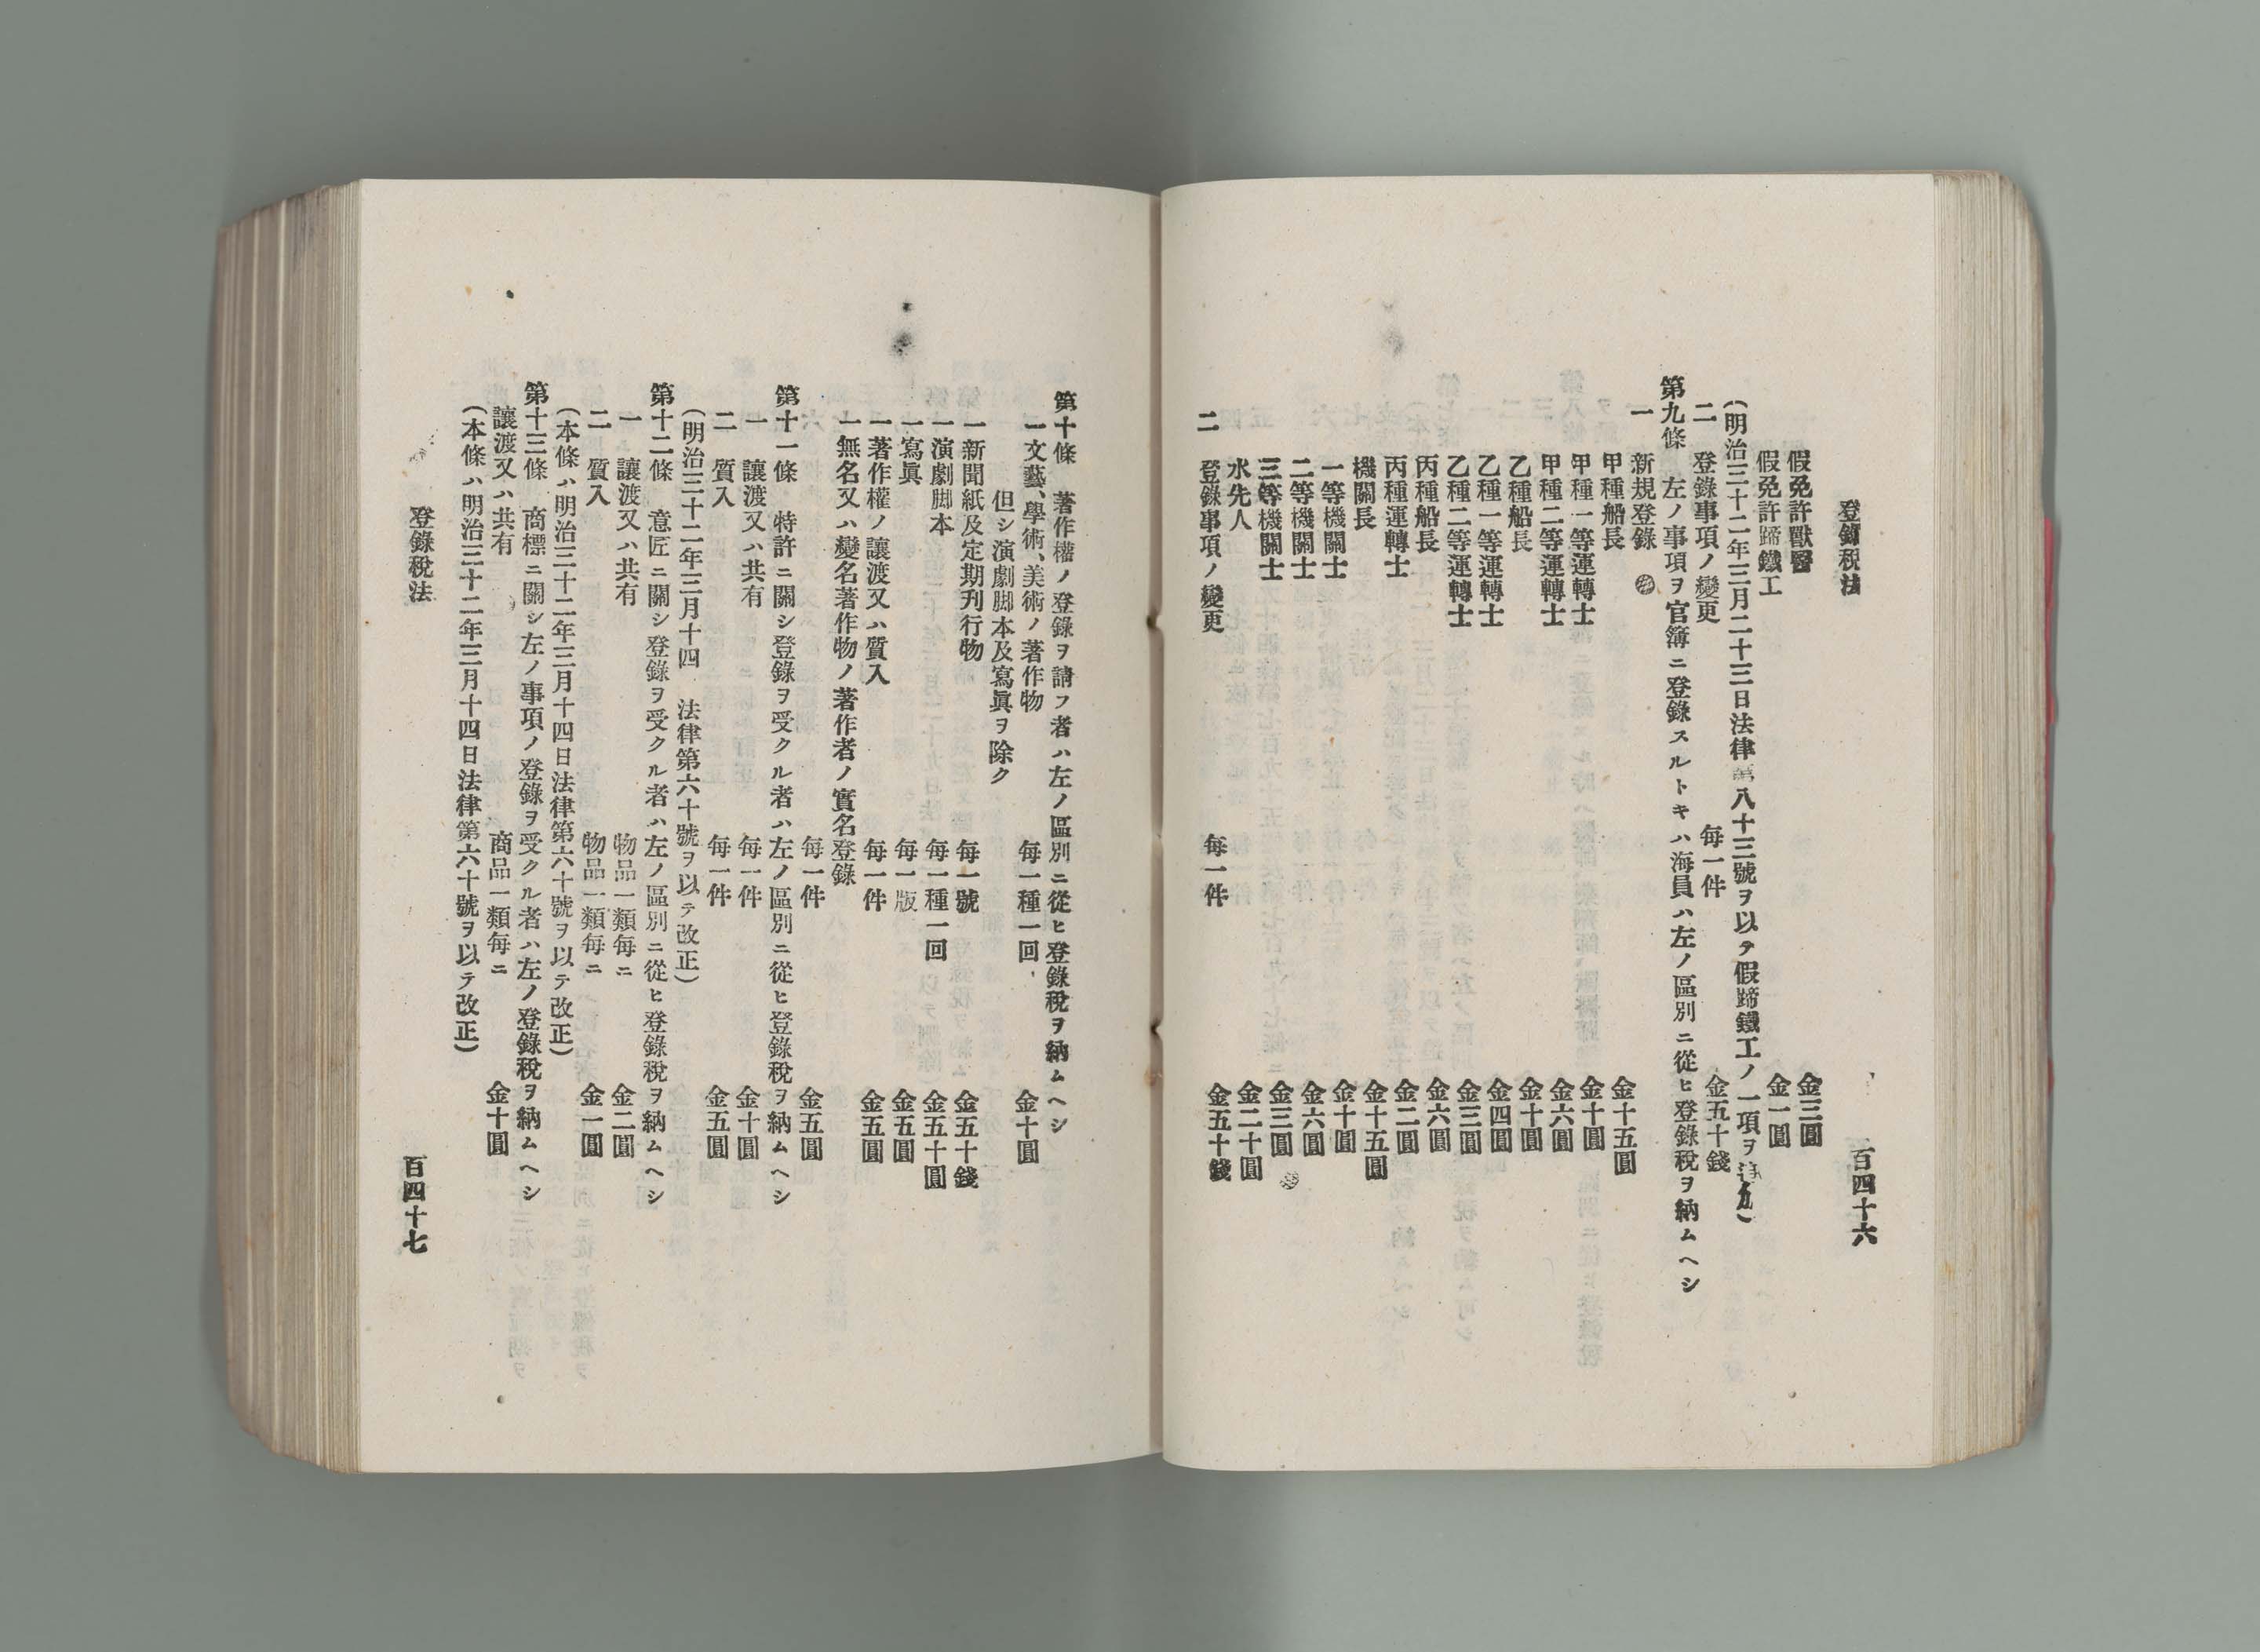 登錄稅法
百四十六
假免許獸醫 金三圓
假免許蹄鐵工 金一圓
(明治三十二年三月二十三日法律第八十三號ヲ以テ假蹄鐵工ノ一項ヲ
二 登錄事項ノ變更 每一件 金五十錢
第九條 左ノ事項ヲ官簿ニ登錄スルトキハ海員ハ左ノ區別ニ從ヒ登錄稅ヲ納ムヘシ
一 新規登錄
甲種船長 金十五圓
甲種一等運轉士 金十圓
甲種二等運轉士 金六圓
乙種船長 金十圓
乙種一等運轉士 金四圓
乙種二等運轉士 金三圓
丙種船長 金六圓
丙種運轉士 金二圓
機關長 金十五圓
一等機關士 金十圓
二等機關士 金六圓
三等機關士 金三圓
水先人 金二十圓
二 登錄事項ノ變更 每一件 金五十錢
第十條 著作權ノ登錄ヲ請フ者ハ左ノ區別ニ從ヒ登錄稅ヲ納ムヘシ
一文藝、學術、美術ノ著作物 每一種一回 金十圓
但シ演劇脚本及寫眞ヲ除ク
一新聞紙及定期刋行物 每一號 金五十錢
一演劇脚本 每一種一回 金五十圓
一寫眞 每一版 金五圓
一著作權ノ讓渡又ハ質入 每一件 金五圓
一無名又ハ變名著作物ノ著作者ノ實名登錄
每一件 金五圓
第十一條 特許ニ關シ登錄ヲ受クル者ハ左ノ區別ニ從ヒ登錄稅ヲ納ムヘシ
一 讓渡又ハ共有 每一件 金十圓
二 質入 每一件 金五圓
(明治三十二年三月十四 法律第六十號ヲ以テ改正)
第十二條 意匠ニ關シ登錄ヲ受クル者ハ左ノ區別ニ從ヒ登錄稅ヲ納ムヘシ
一 讓渡又ハ共有 物品一類每ニ 金二圓
二 質入 物品一類每ニ 金一圓
(本條ハ明治三十二年三月十四日法律第六十號ヲ以テ改正)
第十三條 商標ニ關シ左ノ事項ノ登錄ヲ受クル者ハ左ノ登錄稅ヲ納ムヘシ
讓渡又ハ共有 商品一類每ニ 金十圓
(本條ハ明治三十二年三月十四日法律第六十號ヲ以テ改正)
登錄稅法
百四十七